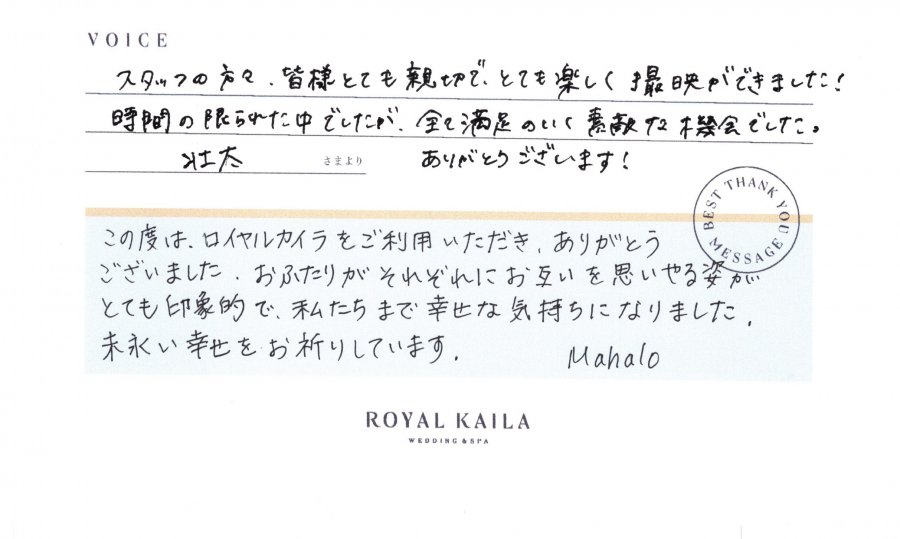 VOICE
スタッフの方々、皆様とても親切で、とても楽しく撮映ができました！
時間の限られた中でしたが、全て満足のいく素敵な機会でした。
壮太 さまより ありがとうございます！
BEST THANK YOU MESSAGE
この度は、ロイヤルカイラをご利用いただき、ありがとう
ございました。おふたりがそれぞれにお互いを思いやる姿が
とても印象的で、私たちまで幸せな気持ちになりました。
末永い幸せをお祈りしています。 Mahalo
ROYAL KAILA
WEDDING & SPA